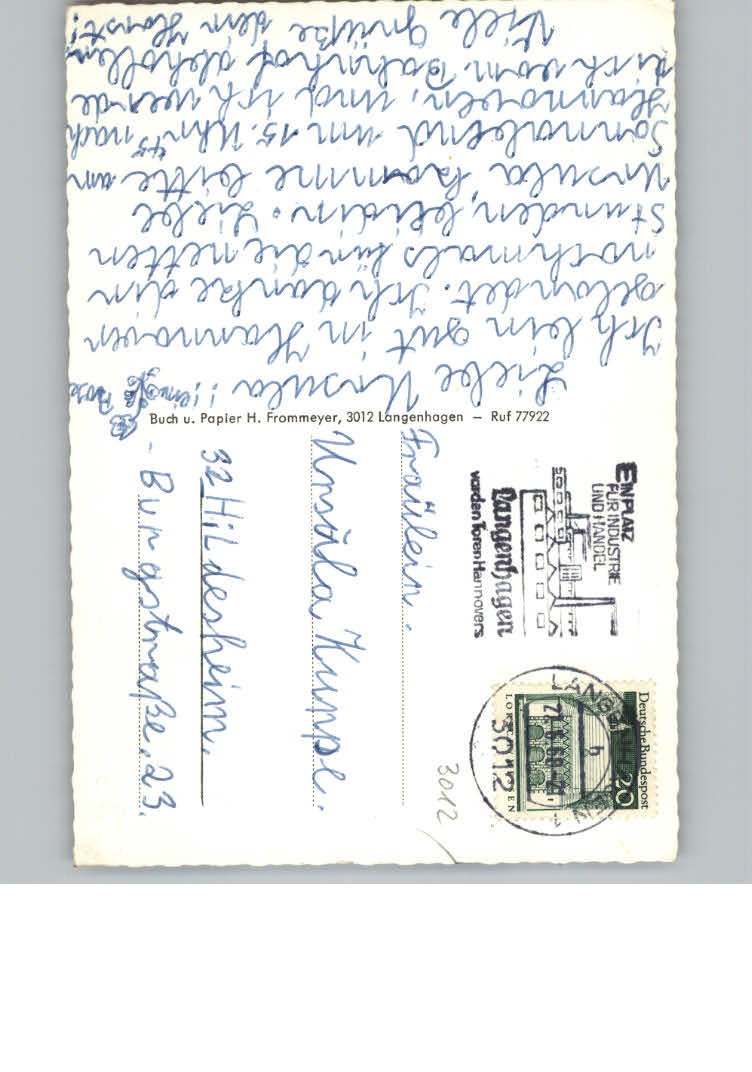 Liebe Ursula!
Ich bin gut in Hannover
gelandet. Ich danke din
nochmals für die netten
Stunden, bei din. Liebe
Ursula komme bitte am
Sonnabend um 15.45 Uhr nach
Hannover, und ich werde
dich vom Bahnhof abhollen
Viele Grüße dein Horst!
Buch u. Papier H. Frommeyer, 3012 Langenhagen — Ruf 77922
Fräulein.
Ursula Kumpe.
32 Hildesheim.
Burgstraße. 23.
3012
EIN PLATZ
FÜR INDUSTRIE
UND HANDEL
Langenhagen
vor den Toren Hannovers
LANGENHAGEN
3012
Deutsche Bundespost
20